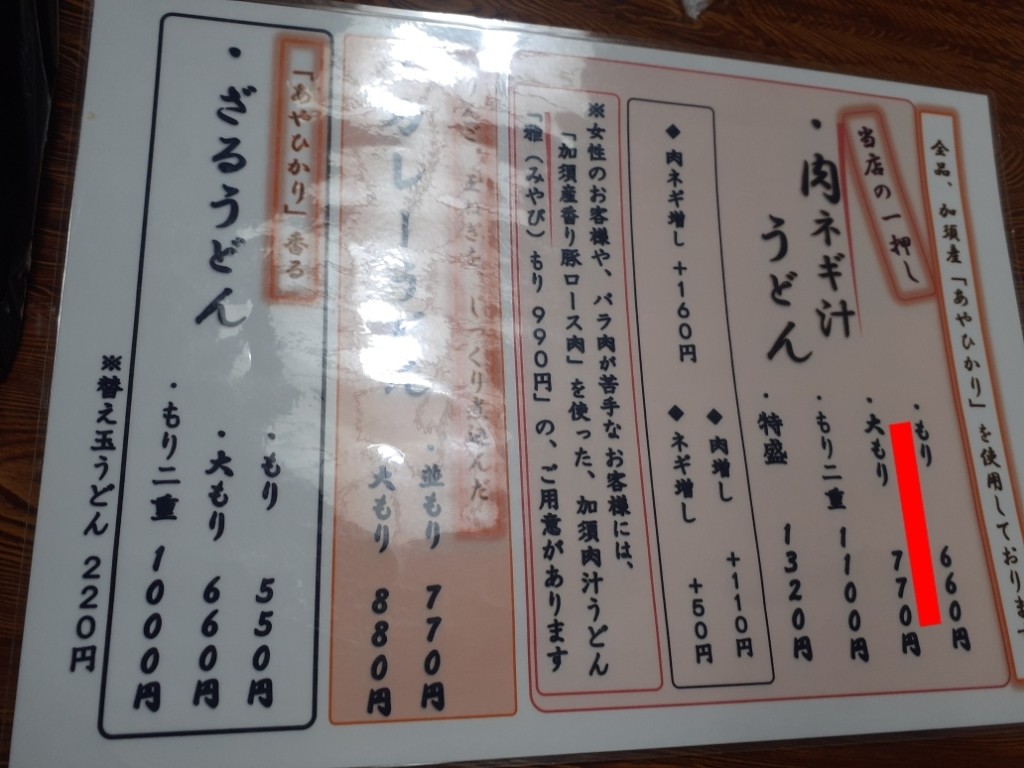 全品、加須産「あやひかり」を使用しております
当店の一押し
・肉ネギ汁
うどん
・もり 660円
・大もり 770円
・もり二重 1100円
・特盛 1320円
◆肉増し +110円
◆ネギ増し +50円
◆肉ネギ増し +160円
※女性のお客様や、バラ肉が苦手なお客様には、
「加須産香り豚ロース肉」を使った、加須肉汁うどん
「雅（みやび）もり 990円」の、ご用意があります
りんご、玉ねぎを、じっくり煮込んだ
カレーうどん
・並もり 770円
・大もり 880円
「あやひかり」香る
・ざるうどん
・もり 550円
・大もり 660円
・もり二重 1000円
※替え玉うどん 220円